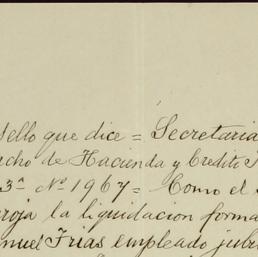 sello que dice = Secretaria
acho de Hacienda y Credito
3ª Nº 1967 = Como el
rroja la liquidacion forma
nuel Frias empleado jubi